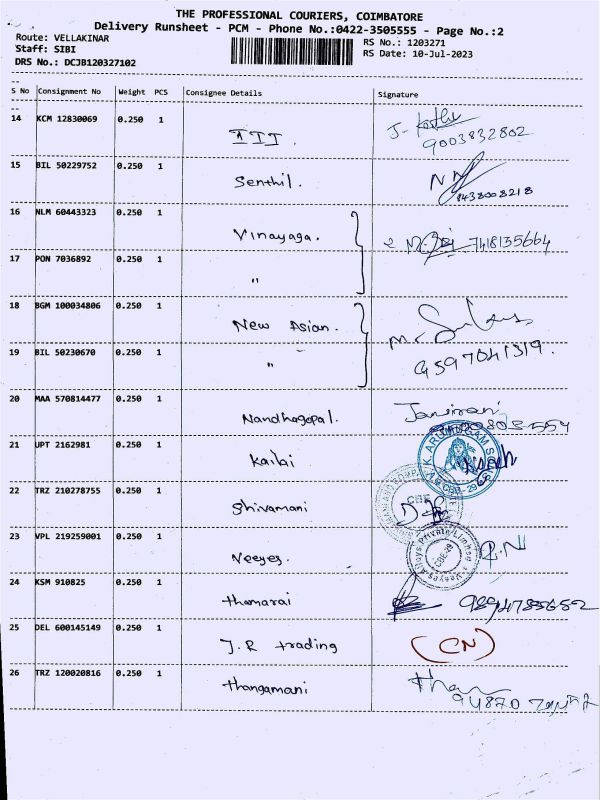 THE PROFESSIONAL COURIERS, COIMBATORE
Delivery Runsheet - PCM - Phone No.:0422-3505555 - Page No.:2
Route: VELLAKINAR
RS No.: 1203271
Staff: SIBI
RS Date: 10-Jul-2023
DRS No.: DCJB120327102
S No Consignment No Weight PCS Consignee Details Signature
14 KCM 12830069 0.250 1
III 9003832802
15 BIL 50229752 0.250 1
Senthil. 8438008218
16 NLM 60443323 0.250 1
Vinayaga. 7418135664
17 PON 7036892 0.250 1
"
18 BGM 100034806 0.250 1
New Asian.
19 BIL 50230670 0.250 1
" 9597041319.
20 MAA 570814477 0.250 1
Nandhagopal.
21 UPT 2162981 0.250 1
Kailai
22 TRZ 210278755 0.250 1
Shivamani
23 VPL 219259001 0.250 1
Veeyes.
24 KSM 910825 0.250 1
thamarai
25 DEL 600145149 0.250 1
J.R trading (CN)
26 TRZ 120020816 0.250 1
thangamani